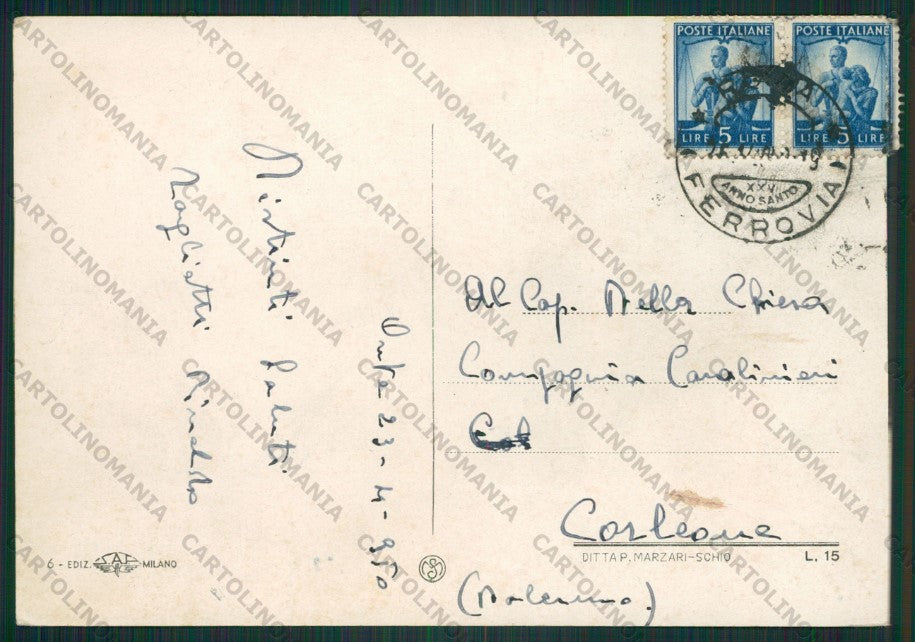 POSTE ITALIANE
LIRE 5 LIRE
POSTE ITALIANE
LIRE 5 LIRE
XXV
ANNO SANTO
FERROVIA
Distinti Saluti
Rinaldo
23-4-950
Al Cap. Della Chiesa
Compagnia Carabinieri
Corleone
(Palermo)
6 - EDIZ. SAF MILANO
DITTA P. MARZARI-SCHIO
L. 15
CARTOLINOMANIA